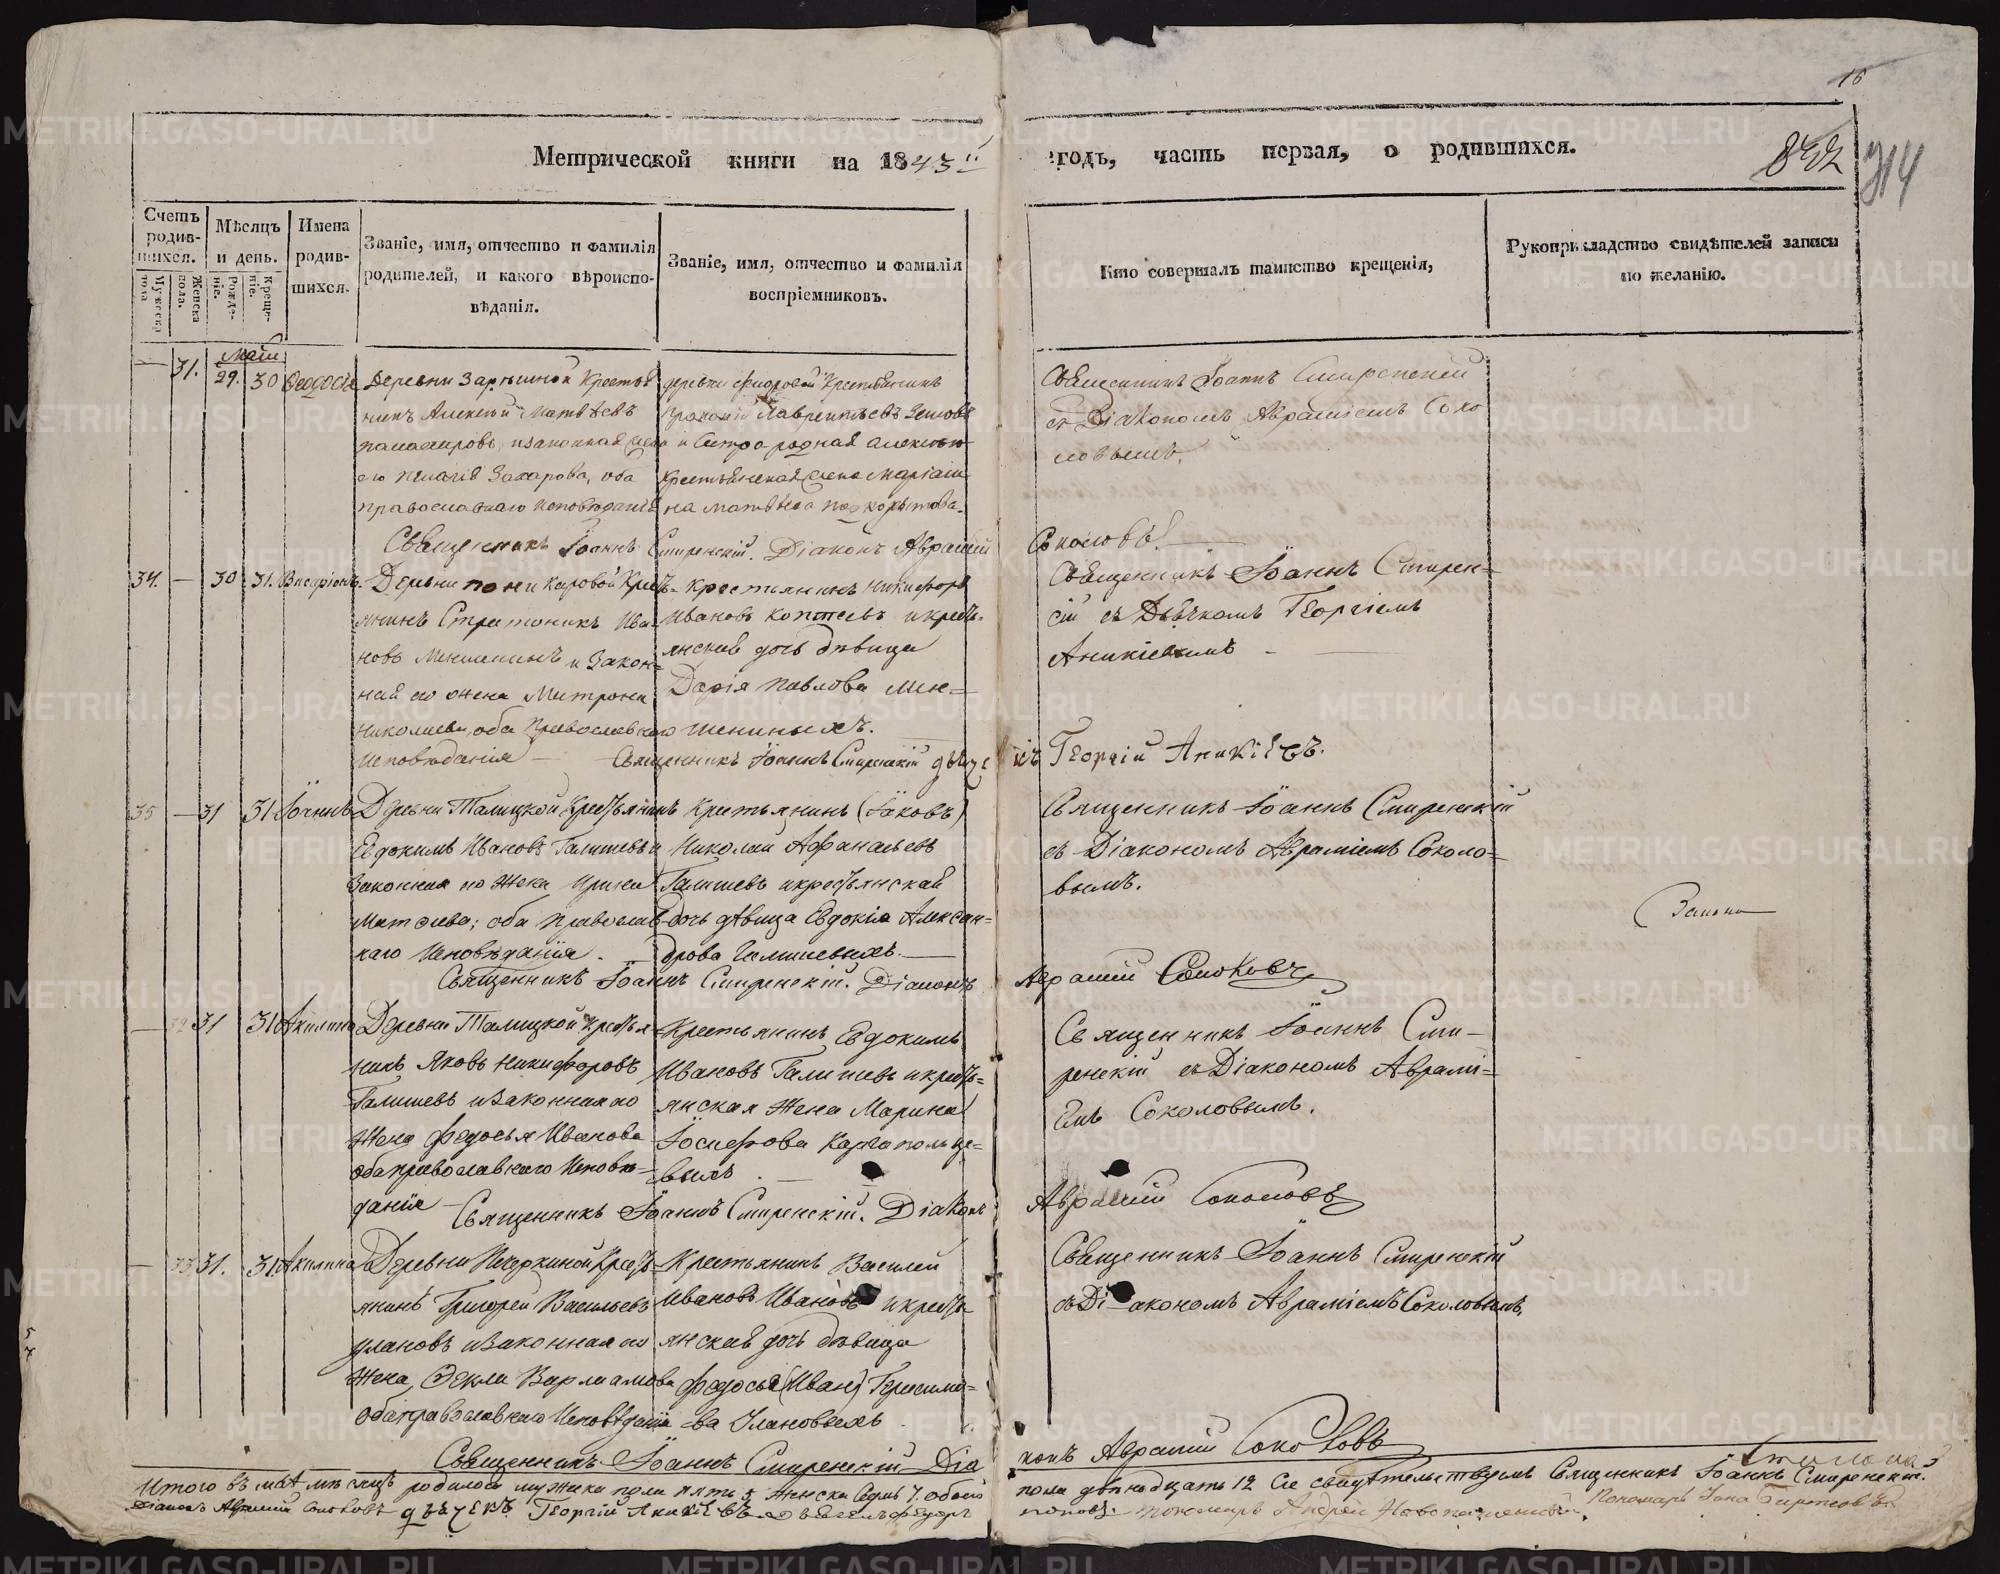 16
Метрической книги на 1843й
годъ, часть первая, о родившихся.
832
314
Счетъ родив-шихся.
Мужеска пола
Женска пола.
Мѣсяцъ и день.
Рожде-ніе.
Креще-ніе.
Имена родив-шихся.
Званіе, имя, отчество и фамилія
родителей, и какого вѣроиспо-
вѣданія.
Званіе, имя, отчество и фамилія
воспріемниковъ.
Кто совершалъ таинство крещенія,
Рукоприкладство свидѣтелей записи
по желанію.
Маіи
— 31. 29. 30 Ѳеодосія
Деревни Крестья
нинъ Алексѣй Матвѣевъ
и законная
его Пелагія Захарова, оба
православнаго исповѣданія
деревни Крестьянинъ
Прокопій Лаврентьевъ
и
крестьянская жена Маріам
на Матвѣева Подкорытова.
Священникъ Іоаннъ Смиренскій
съ Діакономъ Авраміемъ Соко
ловымъ.
Священникъ Іоаннъ Смиренскій. Діаконъ Аврамій Соколовъ.
34. — 30 31. Виссаріонъ.
Деревни Поникаровой Крестъ-
янинъ Стратоникъ Ива-
новъ Меншенинъ и Закон-
ная его жена Матрона
Николаева, оба Православнаго
Исповѣданія
Крестьянинъ Никифоръ
Ивановъ Коптевъ и крестъ-
янская дочь дѣвица
Дарія Павлова Мен-
шениныхъ.
Священникъ Іоаннъ Смирен=
скій съ Дьячкомъ Георгіемъ
Аникіевымъ
Священникъ Іоаннъ Смиренскій дьячекъ Георгій Аникіевъ.
35 — 31 31 Іоаннъ
Деревни Талицкой Крестьянинъ
Евдокимъ Ивановъ Галишевъ и
Законная его Жена Ирина
Матѳеева; оба Православ-
наго Исповѣданія.
Крестьянинъ (Іаковъ)
Николай Афанасьевъ
Галишевъ и крестьянская
дочь дѣвица Евдокія Алексан=
дрова Галишевыхъ.
Священникъ Іоаннъ Смиренскій
съ Діакономъ Авраміемъ Соколо=
вымъ.
Священникъ Іоаннъ Смиренскій. Діаконъ Аврамій Соколовъ
— 32 31 31 Акилина
Деревни Талицкой Крестья
нинъ Яковъ Никифоровъ
Галишевъ и Законная его
Жена Федосья Иванова
оба православнаго Исповѣ=
данія
Крестьянинъ Евдокимъ
Ивановъ Галишевъ и крестъ=
янская Жена Марина
Іосифова Каргапольце=
выхъ.
Священникъ Іоаннъ Сми=
ренскій съ Діакономъ Аврамі=
емъ Соколовымъ.
Священникъ Іоаннъ Смиренскій. Діаконъ Аврамій Соколовъ
— 33 31. 31. Акилина
Деревни Печеркиной Крестъ
янинъ Григорей Васильевъ
Улановъ и Законная его
Жена, Ѳекла Варлаамова
оба православнаго Исповѣданія
Крестьянинъ Василей
Ивановъ Ивановъ и крестъ
янская дочь дѣвица
Федосья (Иван) Герасимо=
ва Улановыхъ
Священникъ Іоаннъ Смиренскій
съ Діакономъ Авраміемъ Соколовымъ,
Священникъ Іоаннъ Смиренскій Діаконъ Аврамій Соколовъ
Итого въ маѣ мѣсяцѣ родилося мужска пола пять 5 Женска Седмь 7. Обоего
пола двѣнадцать 12 Сіе свидѣтельствуемъ Священникъ Іоаннъ Смиренскій.
Діаконъ Аврамій Соколовъ дьячекъ Георгій Аникіевъ
Пономарь Андрей
Пономарь
METRIKI.GASO-URAL.RU